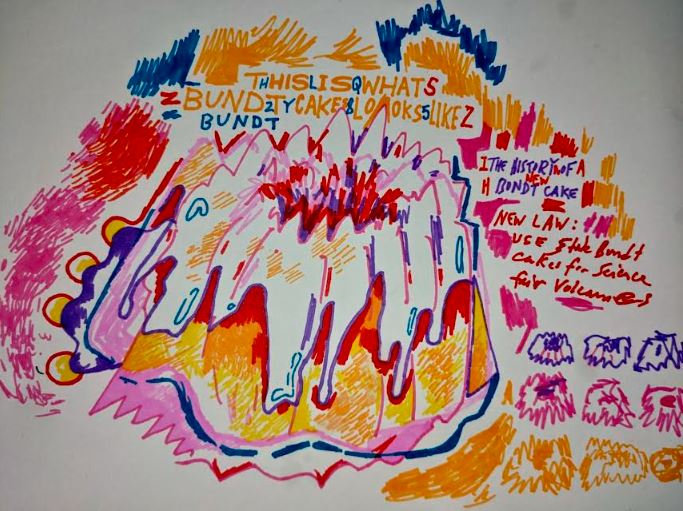 THHISLISQWHATS
ZBUNDZTYCAKE8LOOKS5LIKEZ
BUNDT
1THE HISTORYOFA
H NEW
BONDT CAKE
NEW LAW:
USE Bundt
cakes for Science
fair Volcanoes